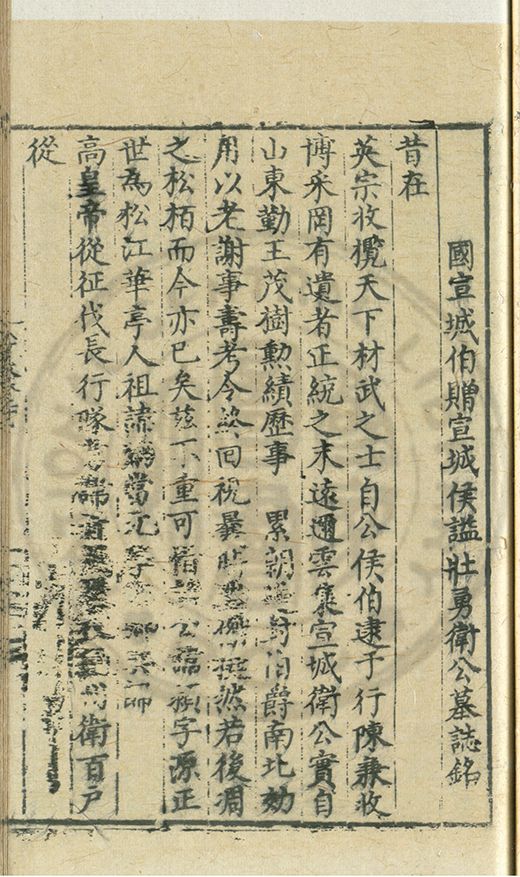 國宣城伯贈宣城侯謚壯勇衛公墓誌銘
昔在
英宗收攬天下材武之士自公侯伯逮于行陳兼收
博采罔有遺者正統之末遠邇雲集宣城衛公實自
山東勤王茂樹勲績歷事 累朝 封伯爵南北効
用以老謝事壽考令終回視曩時 然若後凋
之松栢而今亦已矣玆不重可惜 公諱 字源正
世為松江華亭人祖諱
高皇帝從征伐長行隊 衛百户
從